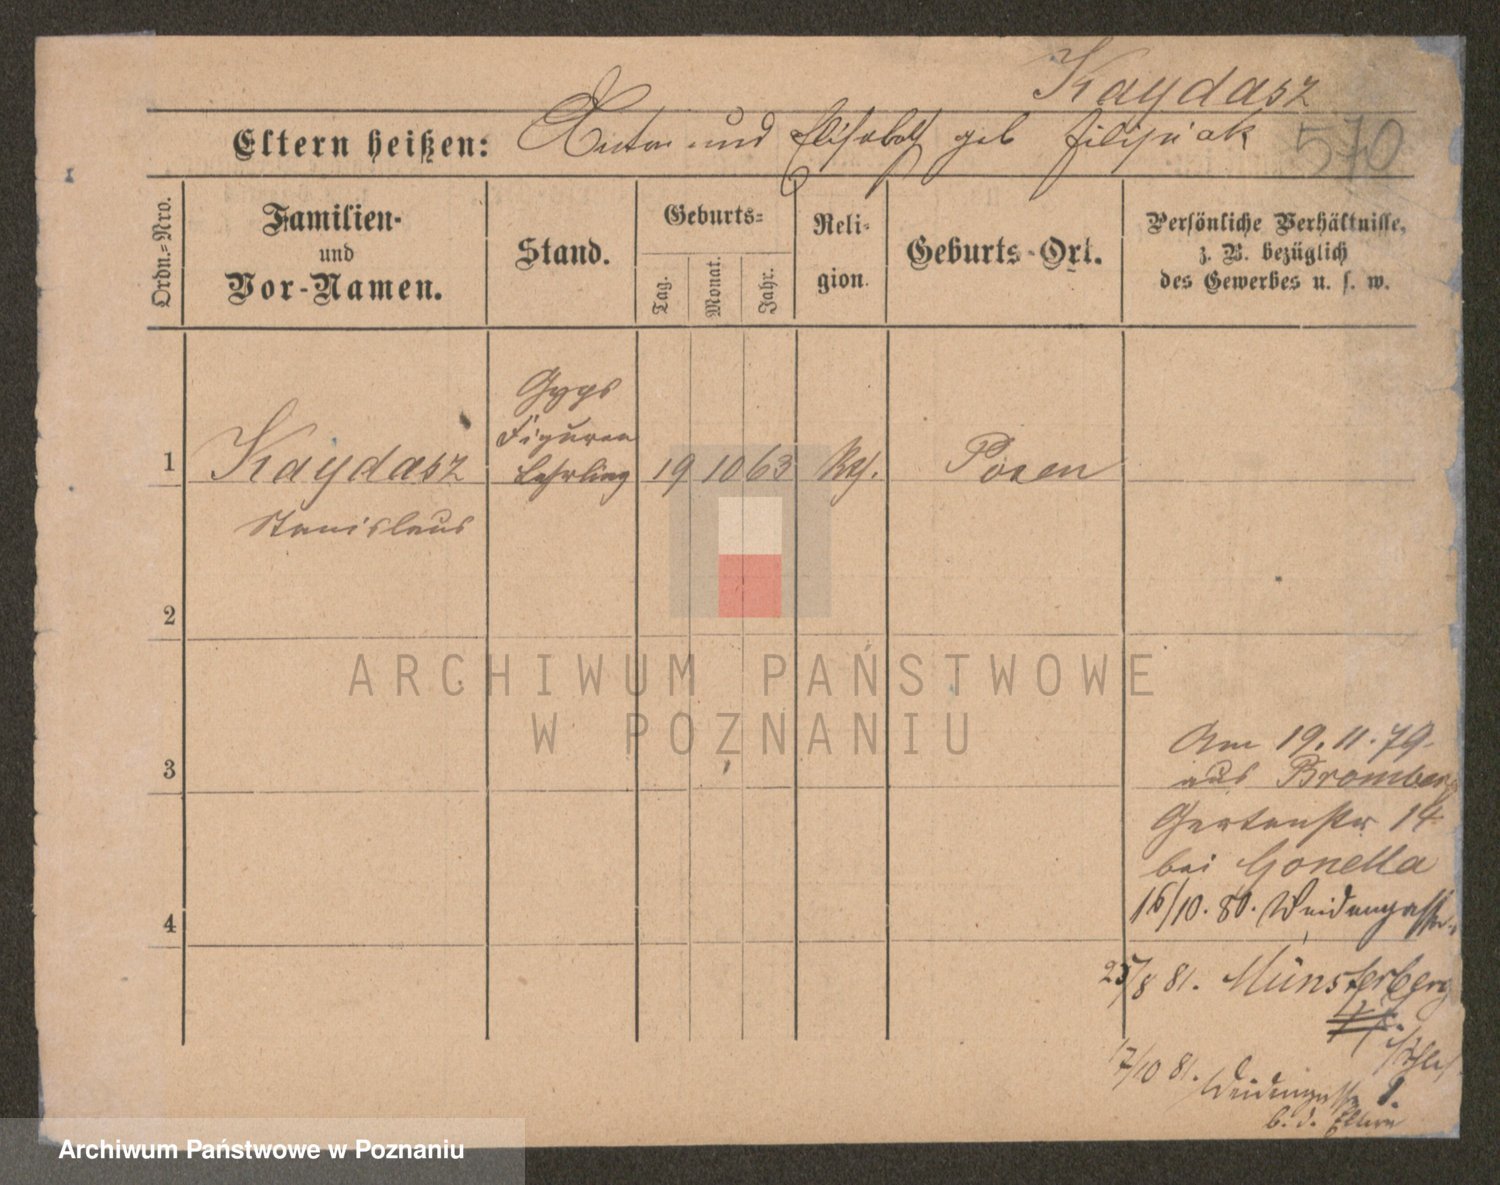 Kaydasz
Eltern heißen: Anton und Elisabeth geb Filipiak
570
Ordn.-Nro.
Familien-
und
Vor-Namen.
Stand.
Geburts-
Tag.
Monat.
Jahr.
Reli-
gion.
Geburts-Ort.
Persönliche Verhältnisse,
z. B. bezüglich
des Gewerbes u. s. w.
1
Kaydasz
Stanislaus
Gyps
Figuren
Lehrling
19
10
63
Posen
2
3
4
Am 19.11.79.
aus Bromberg
Gartenstr 14
bei Gonella
16/10. 80. Weidengasse
25/8 81. Münsterberg
i/Schles.
17/10 81. Weidengasse
b. d. Eltern
ARCHIWUM PAŃSTWOWE
W POZNANIU
Archiwum Państwowe w Poznaniu